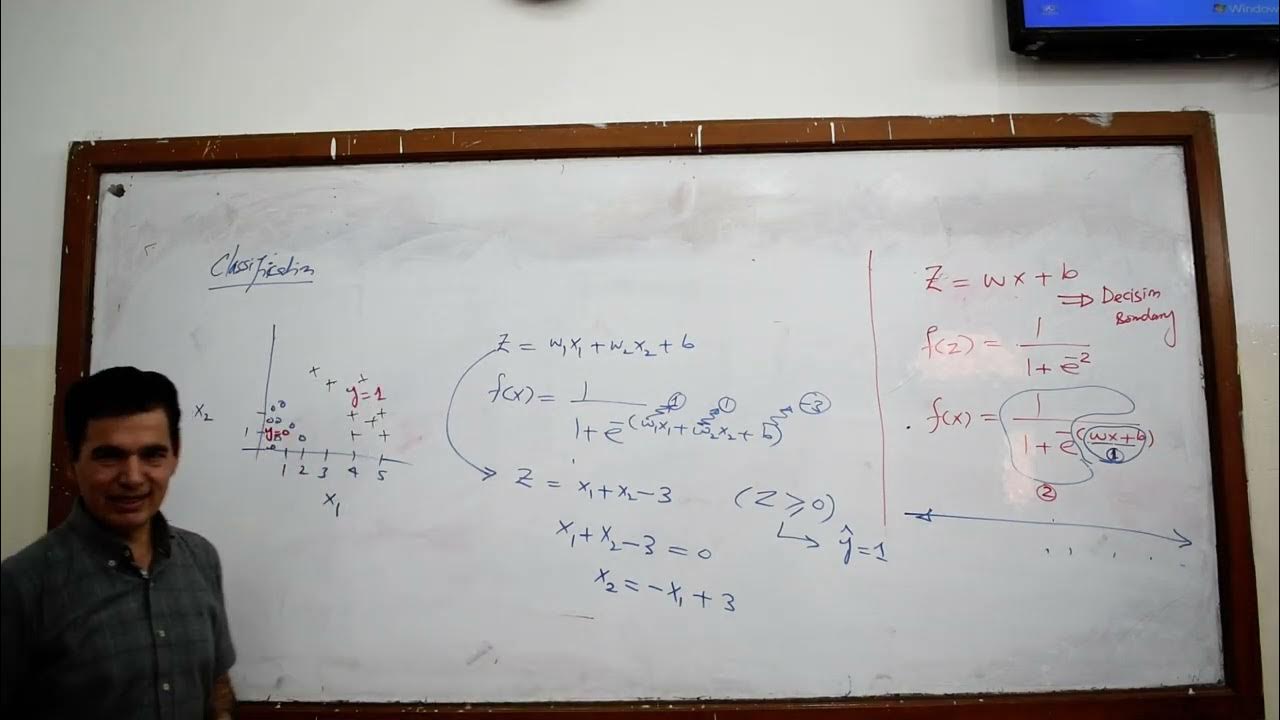 Windows
Classification
x₂
y=1
y=0
1
1 2 3 4 5
x₁
Z = w₁x₁ + w₂x₂ + b
f(x) = 1 / 1 + e^-(w₁x₁ + w₂x₂ + b)
① ① -3
Z = x₁ + x₂ - 3 (Z ⩾ 0)
ŷ = 1
x₁ + x₂ - 3 = 0
x₂ = -x₁ + 3
Z = wx + b
⇒ Decision
Boundary
f(z) = 1 / 1 + e^-z
f(x) = 1 / 1 + e^-(wx + b)
①
②